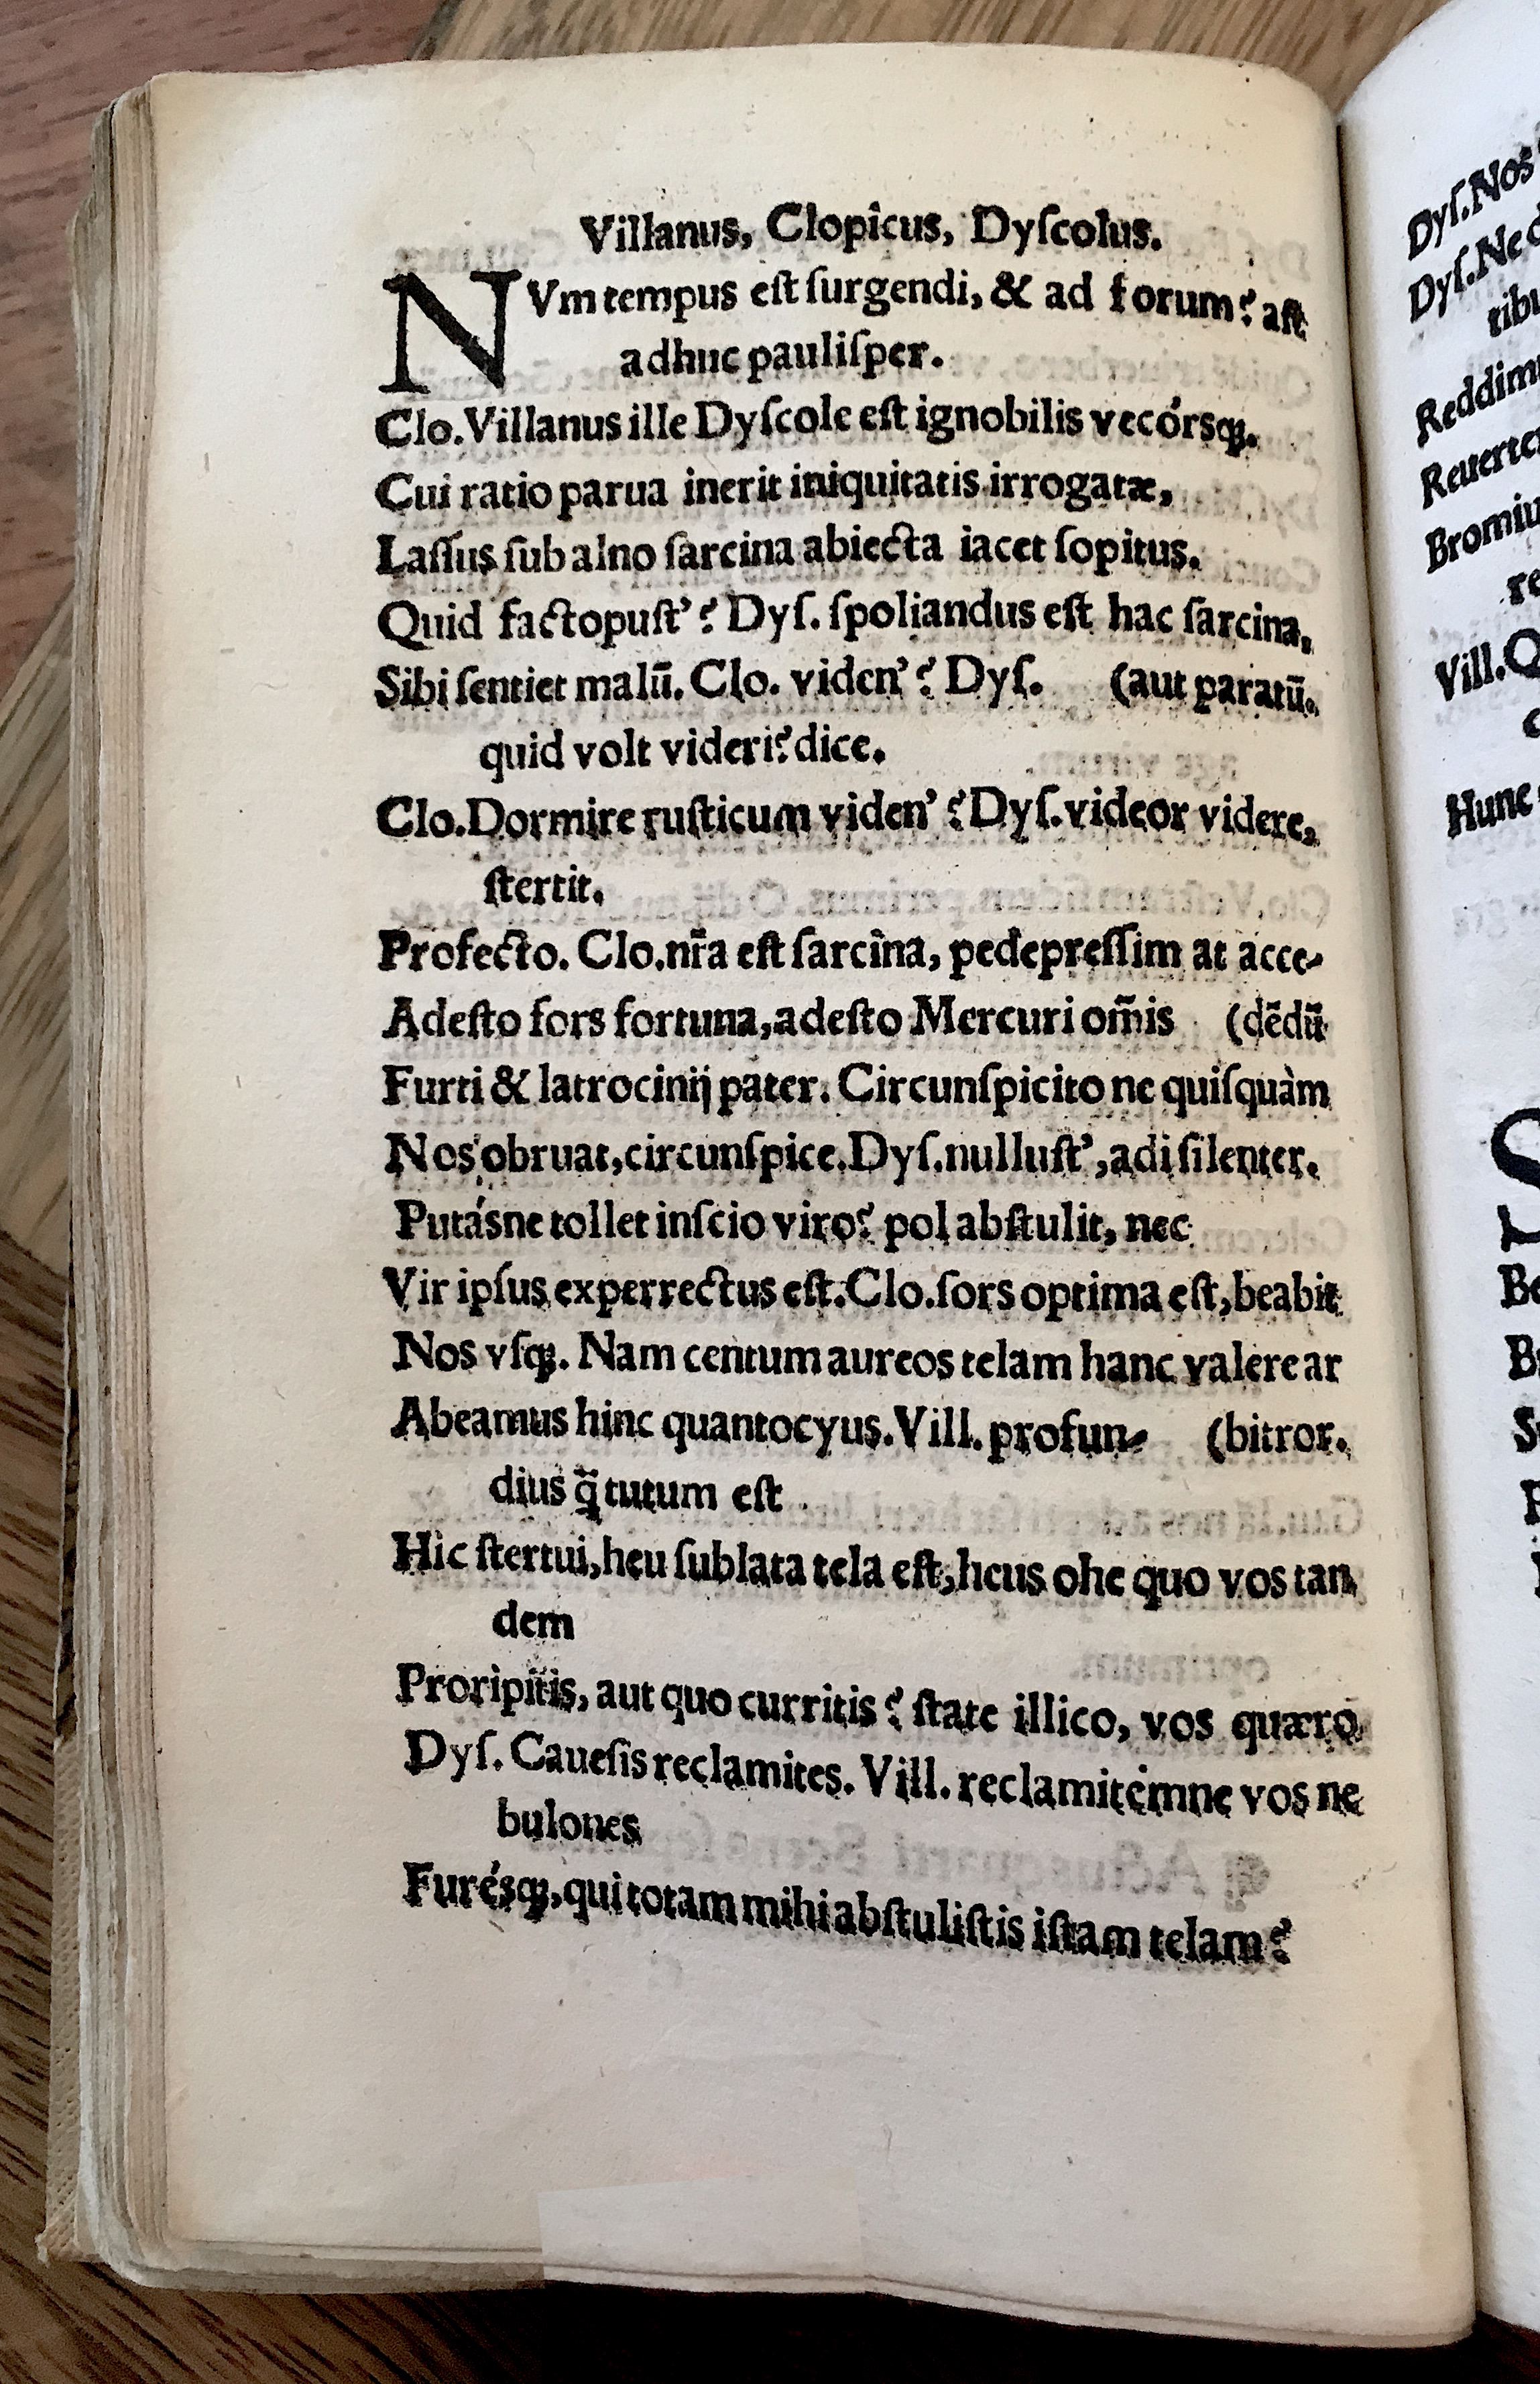 Villanus, Clopîcus, Dyſcolus.
NVm tempus eſt ſurgendi, & ad forum? aſt
adhuc pauliſper.
Clo. Villanus ille Dyſcole eſt ignobilis vecórsq;.
Cui ratio parua inerit iniquitatis irrogatæ,
Laſſus ſub alno ſarcina abiecta iacet ſopitus.
Quid factopuſt’? Dyſ. ſpoliandus eſt hac ſarcina,
Sibi ſentiet malū. Clo. viden’? Dyſ. (aut paratū.
quid volt videri? dice.
Clo. Dormire ruſticum viden’? Dyſ. videor videre,
ſtertit.
Profecto. Clo. nr̄a eſt ſarcîna, pedepreſſim at acce-
Adeſto fors fortuna, adeſto Mercuri om̄is (dēdū
Furti & latrocinij pater. Circunſpicito ne quiſquàm
Nos obruat, circunſpice. Dyſ. nulluſt’, adi ſilenter.
Putásne tollet inſcio viro? pol abſtulit, nec
Vir ipſus experrectus eſt. Clo. ſors optima eſt, beabit
Nos vſq;. Nam centum aureos telam hanc valere ar
Abeamus hinc quantocyus. Vill. profun- (bitror.
dius q̃ tutum eſt
Hic ſtertui, heu ſublata tela eſt, heus ohe quo vos tan
dem
Proripitis, aut quo curritis? ſtate illico, vos quæro
Dyſ. Caueſis reclamites. Vill. reclamitémne vos ne
bulones
Furésq;, qui totam mihi abſtuliſtis iſtam telam?
Dyſ. Nos
Dyſ. Ne
tibu
Reddim
Reuerte
Bromiu
re
Vill. Q
Hunc
S